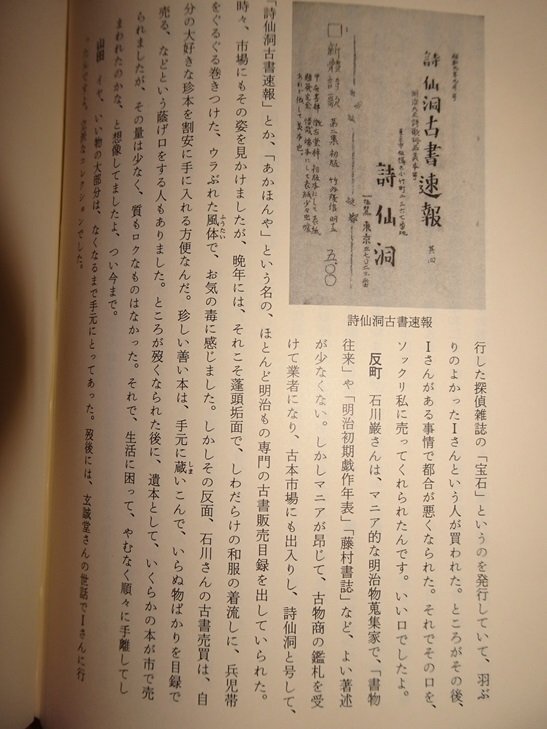 詩仙洞古書速報
其四
詩仙洞
東京
新體詩歌 第二集 初版
五.〇〇
詩仙洞古書速報
行した探偵雑誌の「宝石」というのを発行していて、羽ぶ
りのよかったIさんという人が買われた。ところがその後、
Iさんがある事情で都合が悪くなられた。それでその口を、
ソックリ私に売ってくれられたんです。いい口でしたよ。
反町 石川巌さんは、マニア的な明治物蒐集家で、「書物
往来」や「明治初期戯作年表」「藤村書誌」など、よい著述
が少なくない。しかしマニアが昂じて、古物商の鑑札を受
けて業者になり、古本市場にも出入りし、詩仙洞と号して、
「詩仙洞古書速報」とか、「あかほんや」という名の、ほとんど明治もの専門の古書販売目録を出していられた。
時々、市場にもその姿を見かけましたが、晩年には、それこそ蓬頭垢面で、しわだらけの和服の着流しに、兵児帯
をぐるぐる巻きつけた、ウラぶれた風体ふうていで、お気の毒に感じました。しかしその反面、石川さんの古書売買は、自
分の大好きな珍本を割安に手に入れる方便なんだ。珍しい善い本は、手元に蔵しまいこんで、いらぬ物ばかりを目録で
売る、などという蔭げ口をする人もありました。ところが歿くなられた後に、遺本として、いくらかの本が市で売
られましたが、その量は少なく、質もロクなものはなかった。それで、生活に困って、やむなく順々に手離してし
まわれたのかな、と想像してましたよ、つい今まで。
山田 イヤ、いい物の大部分は、なくなるまで手元にとってあった。歿後には、玄誠堂さんの世話でIさんに行
コレクションでした。